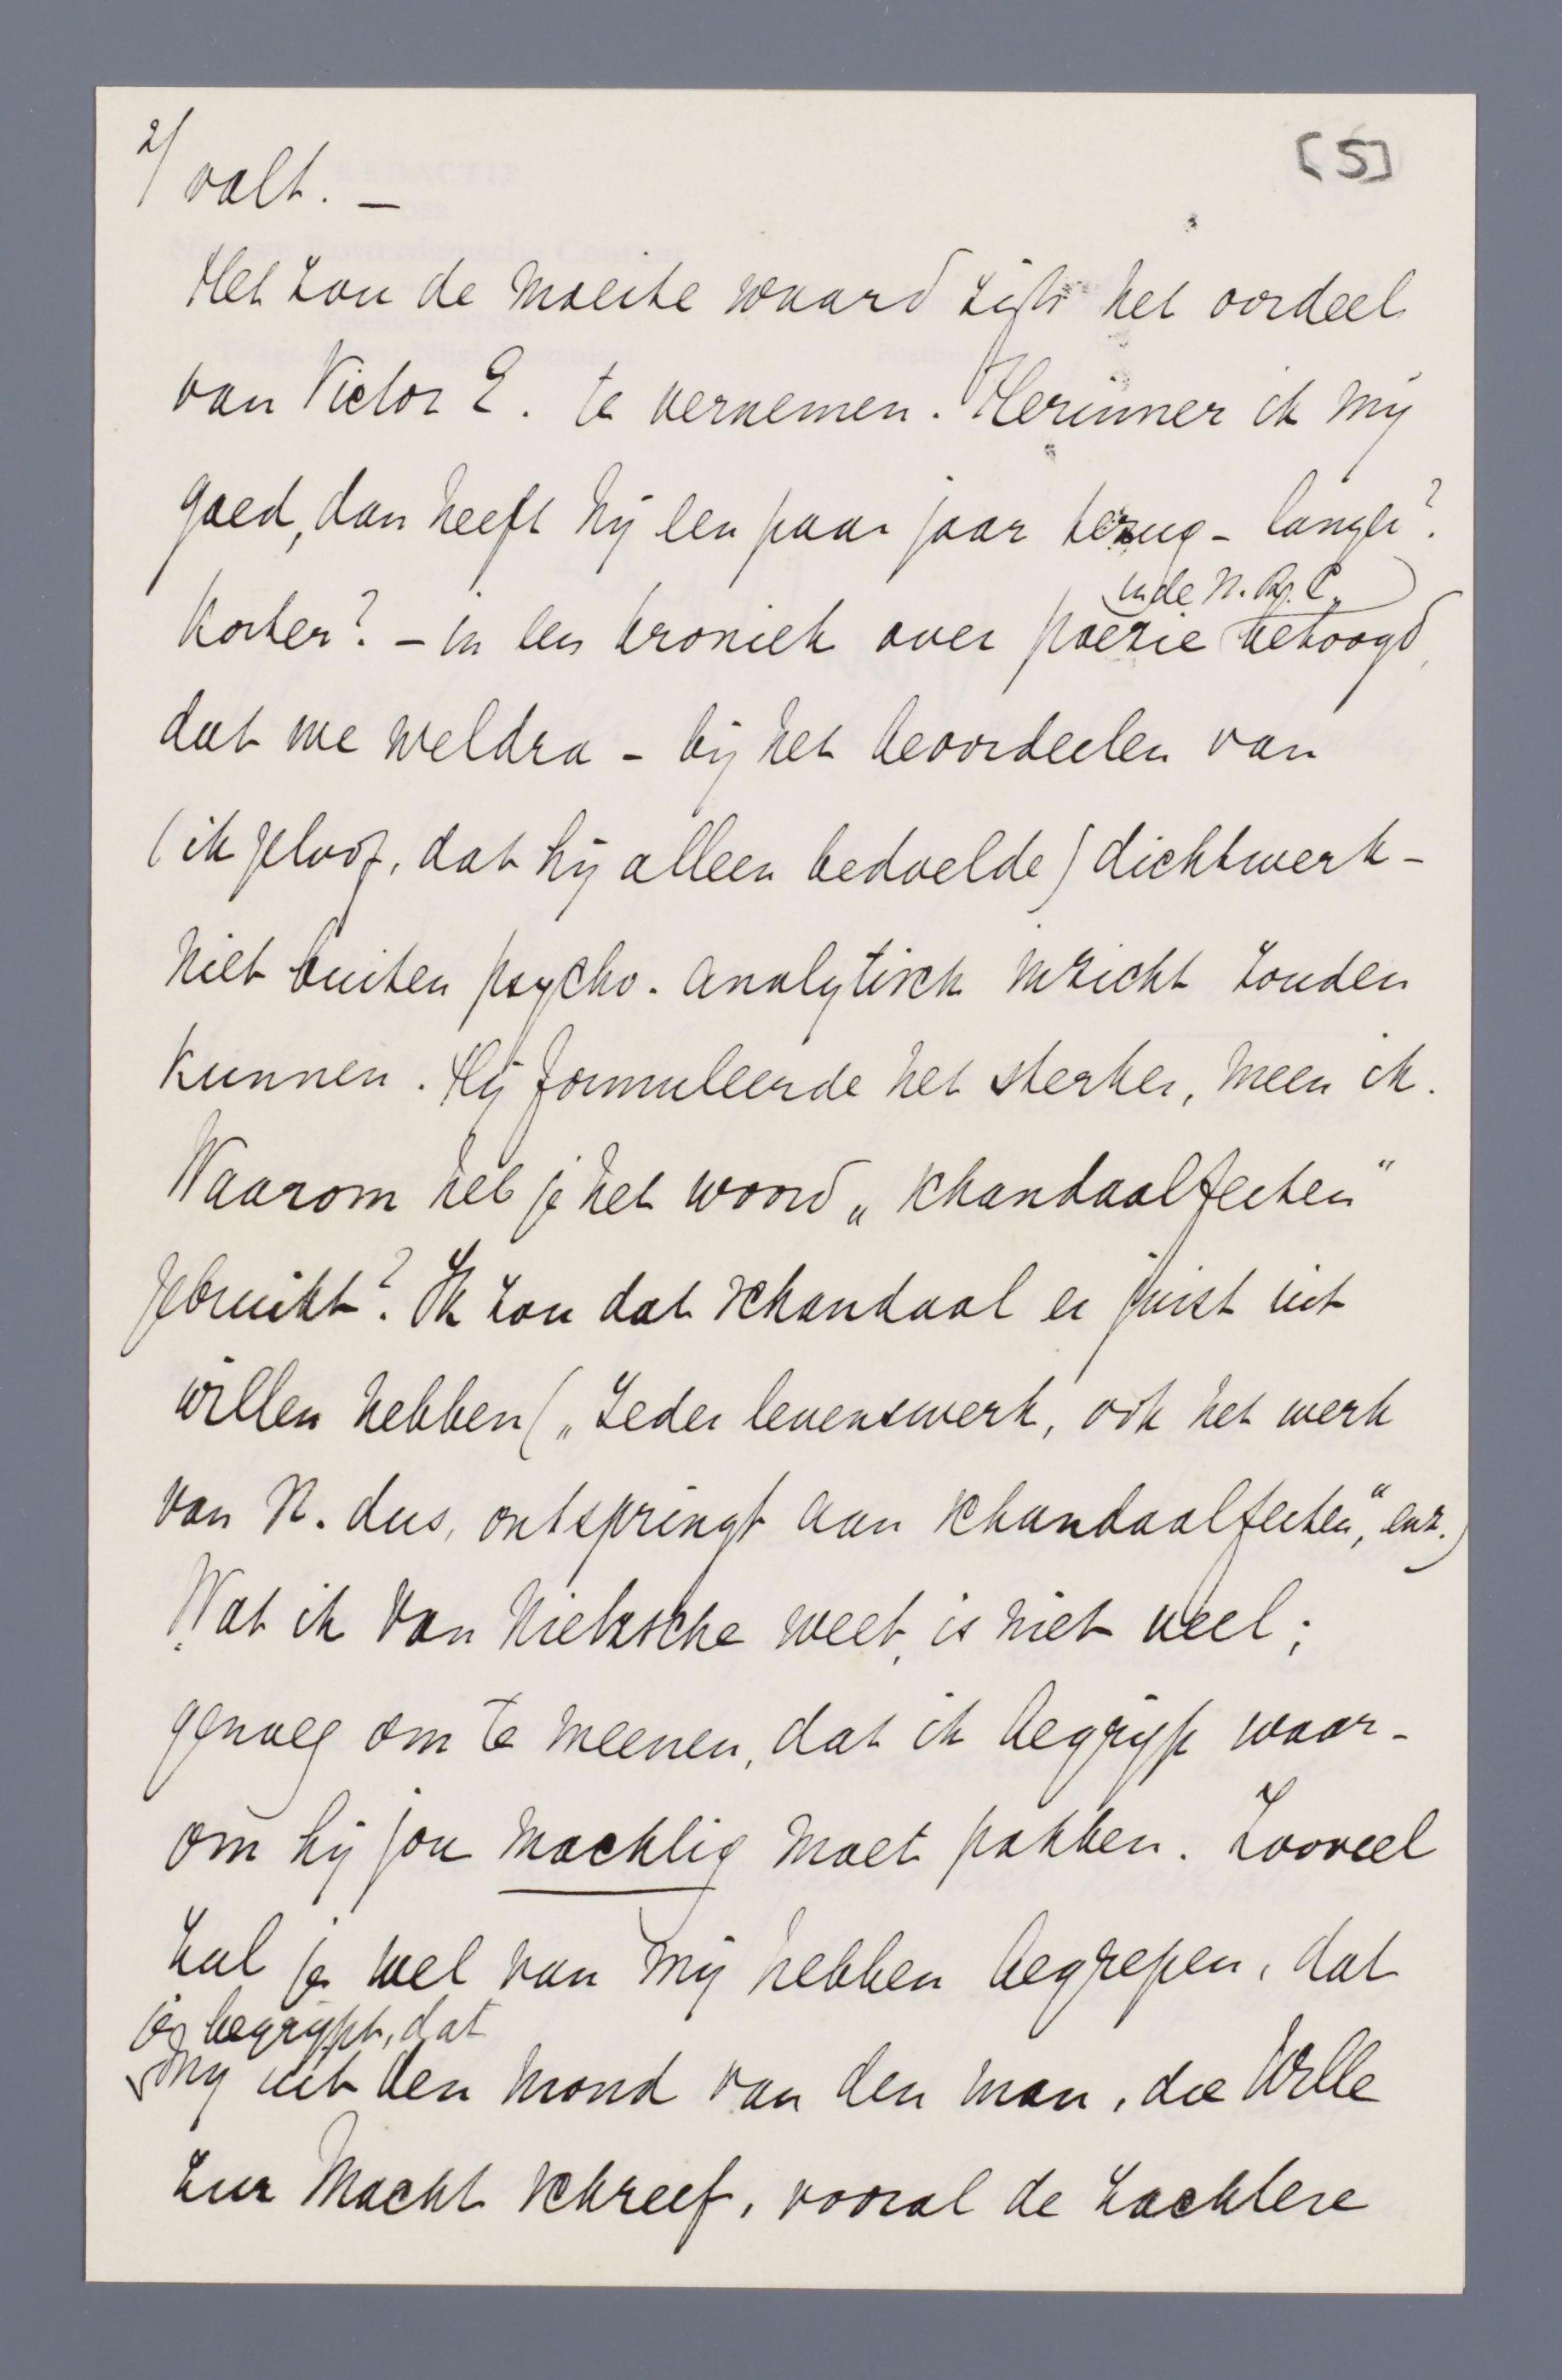 2/ valt. —
[5]
Het zou de moeite waard zijn het oordeel
van Victor E. te vernemen. Herinner ik mij
goed, dan heeft hij een paar jaar terug – langer?
korter? – in een kroniek over poëzie (in de N. R. C.) betoogd,
dat we weldra – bij het beoordeelen van
(ik geloof, dat hij alleen bedoelde) dichtwerk –
niet buiten psycho-analytisch inzicht zouden
kunnen. Hij formuleerde het sterker, meen ik.
Waarom heb je het woord „schandaalfeiten"
gebruikt? Ik zou dat schandaal er juist uit
willen hebben („Ieder levenswerk, ook het werk
van N. dus, ontspringt aan schandaalfeiten", enz.)
Wat ik van Nietzsche weet, is niet veel;
genoeg om te meenen, dat ik begrijp waar-
om hij jou machtig moet pakken. Zooveel
zal je wel van mij hebben begrepen, dat
je begrijpt, dat
mij uit den mond van den man, die Wille
zur Macht schreef, vooral de zachtere